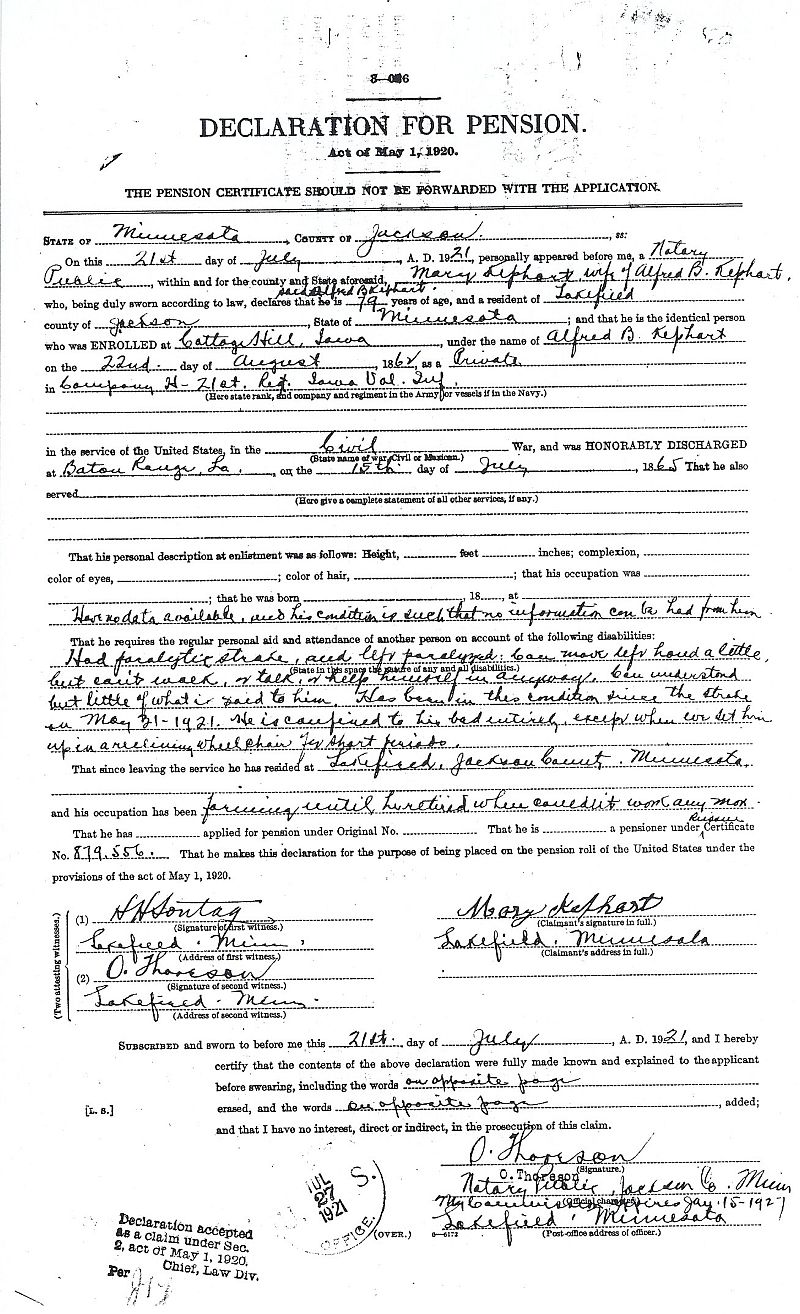 3—006
DECLARATION FOR PENSION.
Act of May 1, 1920.
THE PENSION CERTIFICATE SHOULD NOT BE FORWARDED WITH THE APPLICATION.
STATE OF Minnesota, COUNTY OF Jackson, ss:
On this 21st day of July, A. D. 1921, personally appeared before me, a Notary
Public, within and for the county and State aforesaid, Mary Kephart, wife of Alfred B. Kephart,
said Alfred B Kephart.
who, being duly sworn according to law, declares that he is 79 years of age, and a resident of Lakefield
county of Jackson, State of Minnesota; and that he is the identical person
who was ENROLLED at Cottage Hill, Iowa, under the name of Alfred B. Kephart
on the 22nd. day of August, 1862, as a Private
in Company H - 21st. Reg. Iowa Vol. Inf.
(Here state rank, and company and regiment in the Army, or vessels if in the Navy.)
in the service of the United States, in the Civil War, and was HONORABLY DISCHARGED
(State name of war, Civil or Mexican.)
at Baton Rouge, La., on the 15th day of July, 1865 That he also
served
(Here give a complete statement of all other services, if any.)
That his personal description at enlistment was as follows: Height, feet inches; complexion,
color of eyes, ; color of hair, ; that his occupation was
; that he was born , 18 , at
Have no data available, and his condition is such that no information can be had from him
That he requires the regular personal aid and attendance of another person on account of the following disabilities:
Had paralytic stroke, and left paralyzed. Can move left hand a little,
(State in this space the nature of any and all disabilities.)
but can't walk, or talk, or help himself in anyway. Can understand
but little of what is said to him. Has been in this condition since the stroke
on May 31-1921. He is confined to his bed entirely, except when we set him
up in a reclining wheel chair for short periods.
That since leaving the service he has resided at Lakefield, Jackson County, Minnesota.
and his occupation has been farming until he retired when couldn't work any more.
That he has applied for pension under Original No. That he is a pensioner under Certificate
No. 879,556. That he makes this declaration for the purpose of being placed on the pension roll of the United States under the
provisions of the act of May 1, 1920.
(Two attesting witnesses.)
(1) H H Sontag
(Signature of first witness.)
Lakefield. Minn.
(Address of first witness.)
(2) O. Thoreson
(Signature of second witness.)
Lakefield. Minn.
(Address of second witness.)
Mary Kephart
(Claimant's signature in full.)
Lakefield. Minnesota
(Claimant's address in full.)
SUBSCRIBED and sworn to before me this 21st. day of July, A. D. 1921, and I hereby
certify that the contents of the above declaration were fully made known and explained to the applicant
before swearing, including the words on opposite page
erased, and the words on opposite page, added;
and that I have no interest, direct or indirect, in the prosecution of this claim.
[L. S.]
O. Thoreson
(Signature.)
O. Thoreson
Notary Public, Jackson Co. Minn
(Official character.)
My Commission Expires Jan. 15-1927
Lakefield, Minnesota
(Post-office address of officer.)
6—6172
(OVER.)
JUL
27
1921
S.
OFFICE.
Declaration accepted
as a claim under Sec.
2, act of May 1, 1920.
Chief, Law Div.
Per